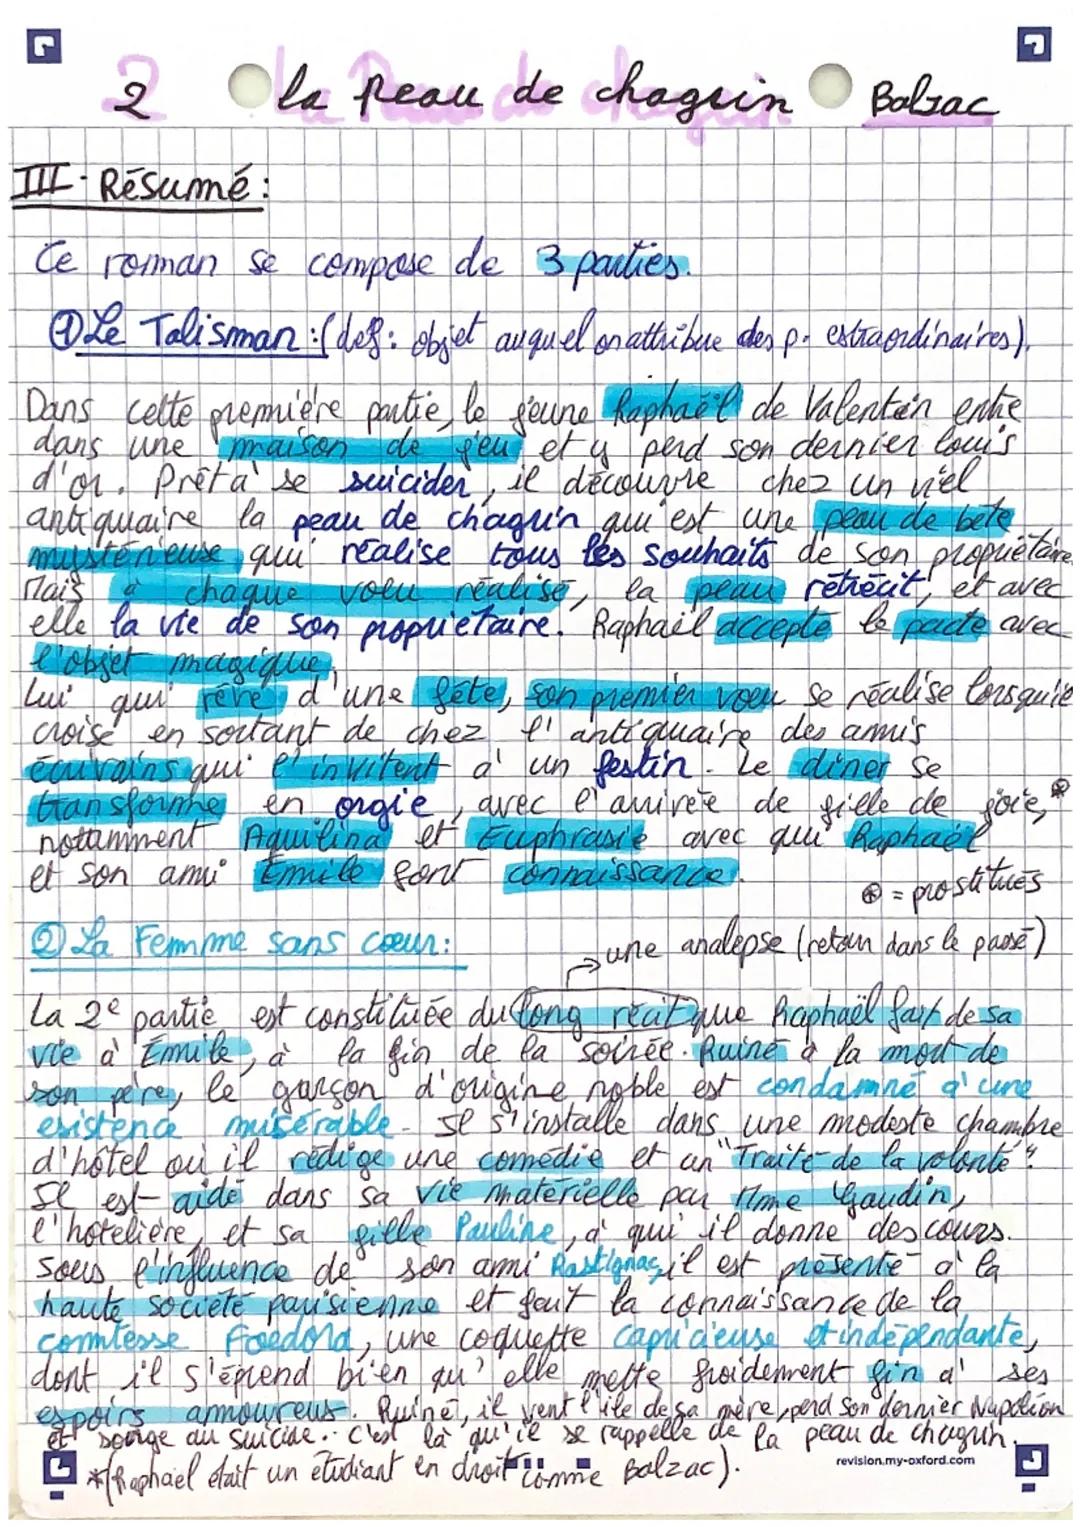 2 La Peau de chagrin Balzac
III - Résumé :
Ce roman se compose de 3 parties.
① Le Talisman : (def : objet auquel on attribue des p. extraordinaires).
Dans cette première partie, le jeune Raphaël de Valentin entre
dans une maison de jeu et y perd son dernier louis
d'or. Prêt à se suicider, il découvre chez un viel
antiquaire la peau de chagrin qui est une peau de bête
mystérieuse qui réalise tous les souhaits de son propriétaire.
Mais à chaque voeu réalisé, la peau rétrécit, et avec
elle la vie de son propriétaire. Raphaël accepte le pacte avec
l'objet magique.
Lui qui rêve d'une fête, son premier voeu se réalise lorsqu'il
croise en sortant de chez l'antiquaire des amis
écrivains qui l'invitent à un festin. Le dîner se
transforme en orgie, avec l'arrivée de fille de joie, ⊛
notamment Aquilina et Euphrasie avec qui Raphaël
et son ami Emile font connaissance.
⊛ = prostitués
② La Femme sans coeur :
→ une analepse (retour dans le passé)
La 2e partie est constituée du long récit que Raphaël fait de sa
vie à Émile, à la fin de la soirée. Ruiné à la mort de
son père, le garçon d'origine noble est condamné à une
existence misérable. Il s'installe dans une modeste chambre
d'hôtel où il rédige une comédie et un "Traité de la volonté".
Il est aidé dans sa vie matérielle par Mme Gaudin,
l'hotelière, et sa fille Pauline, à qui il donne des cours.
Sous l'influence de son ami Rastignac, il est présenté à la
haute société parisienne et fait la connaissance de la
comtesse Foedora, une coquette capricieuse et indépendante,
dont il s'éprend bien qu'elle mette froidement fin à ses
espoirs amoureux. Ruiné, il vent l'île de sa mère, perd son dernier Napoléon
et songe au suicide.. c'est là qu'il se rappelle de la peau de chagrin.
*(Raphaël était un étudiant en droit comme Balzac).
revision.my-oxford.com